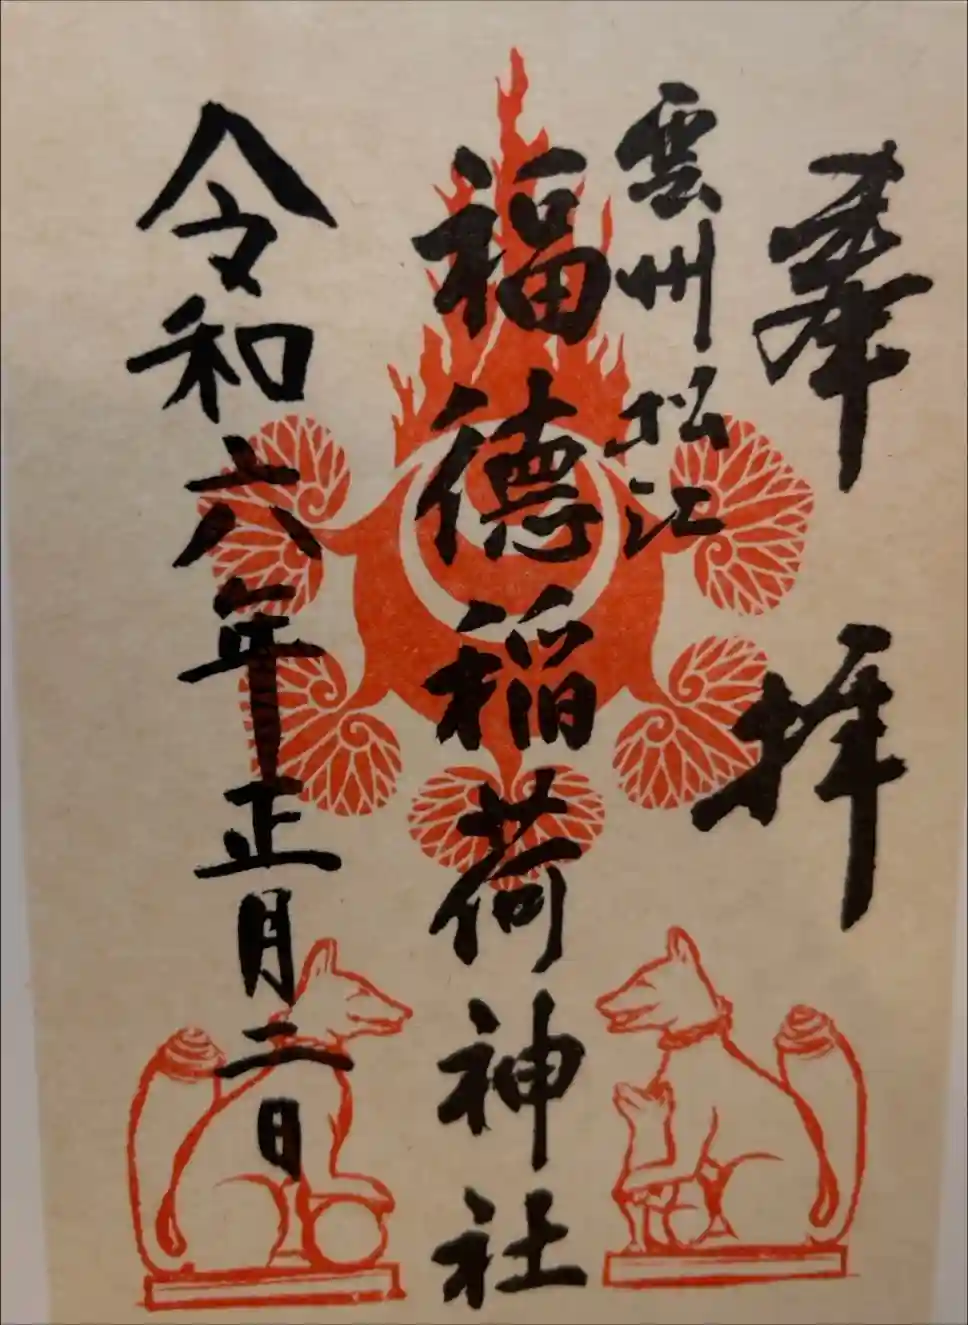 奉拝
雲州松江
福徳稲荷神社
令和六年正月二日